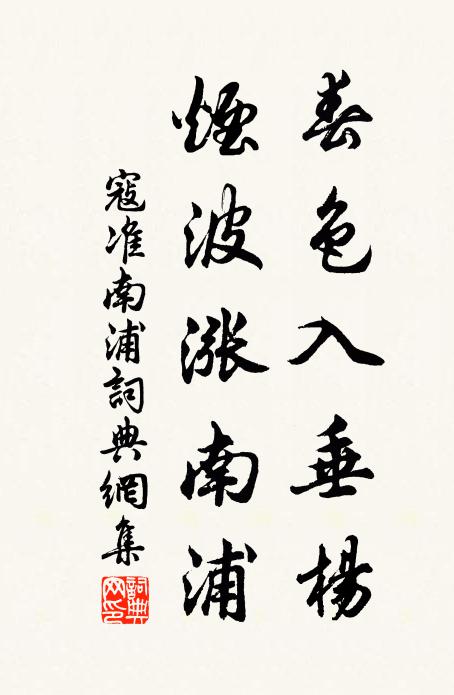 春色入垂楊
煙波漲南浦
寇准南浦詞典網集
詞典網印